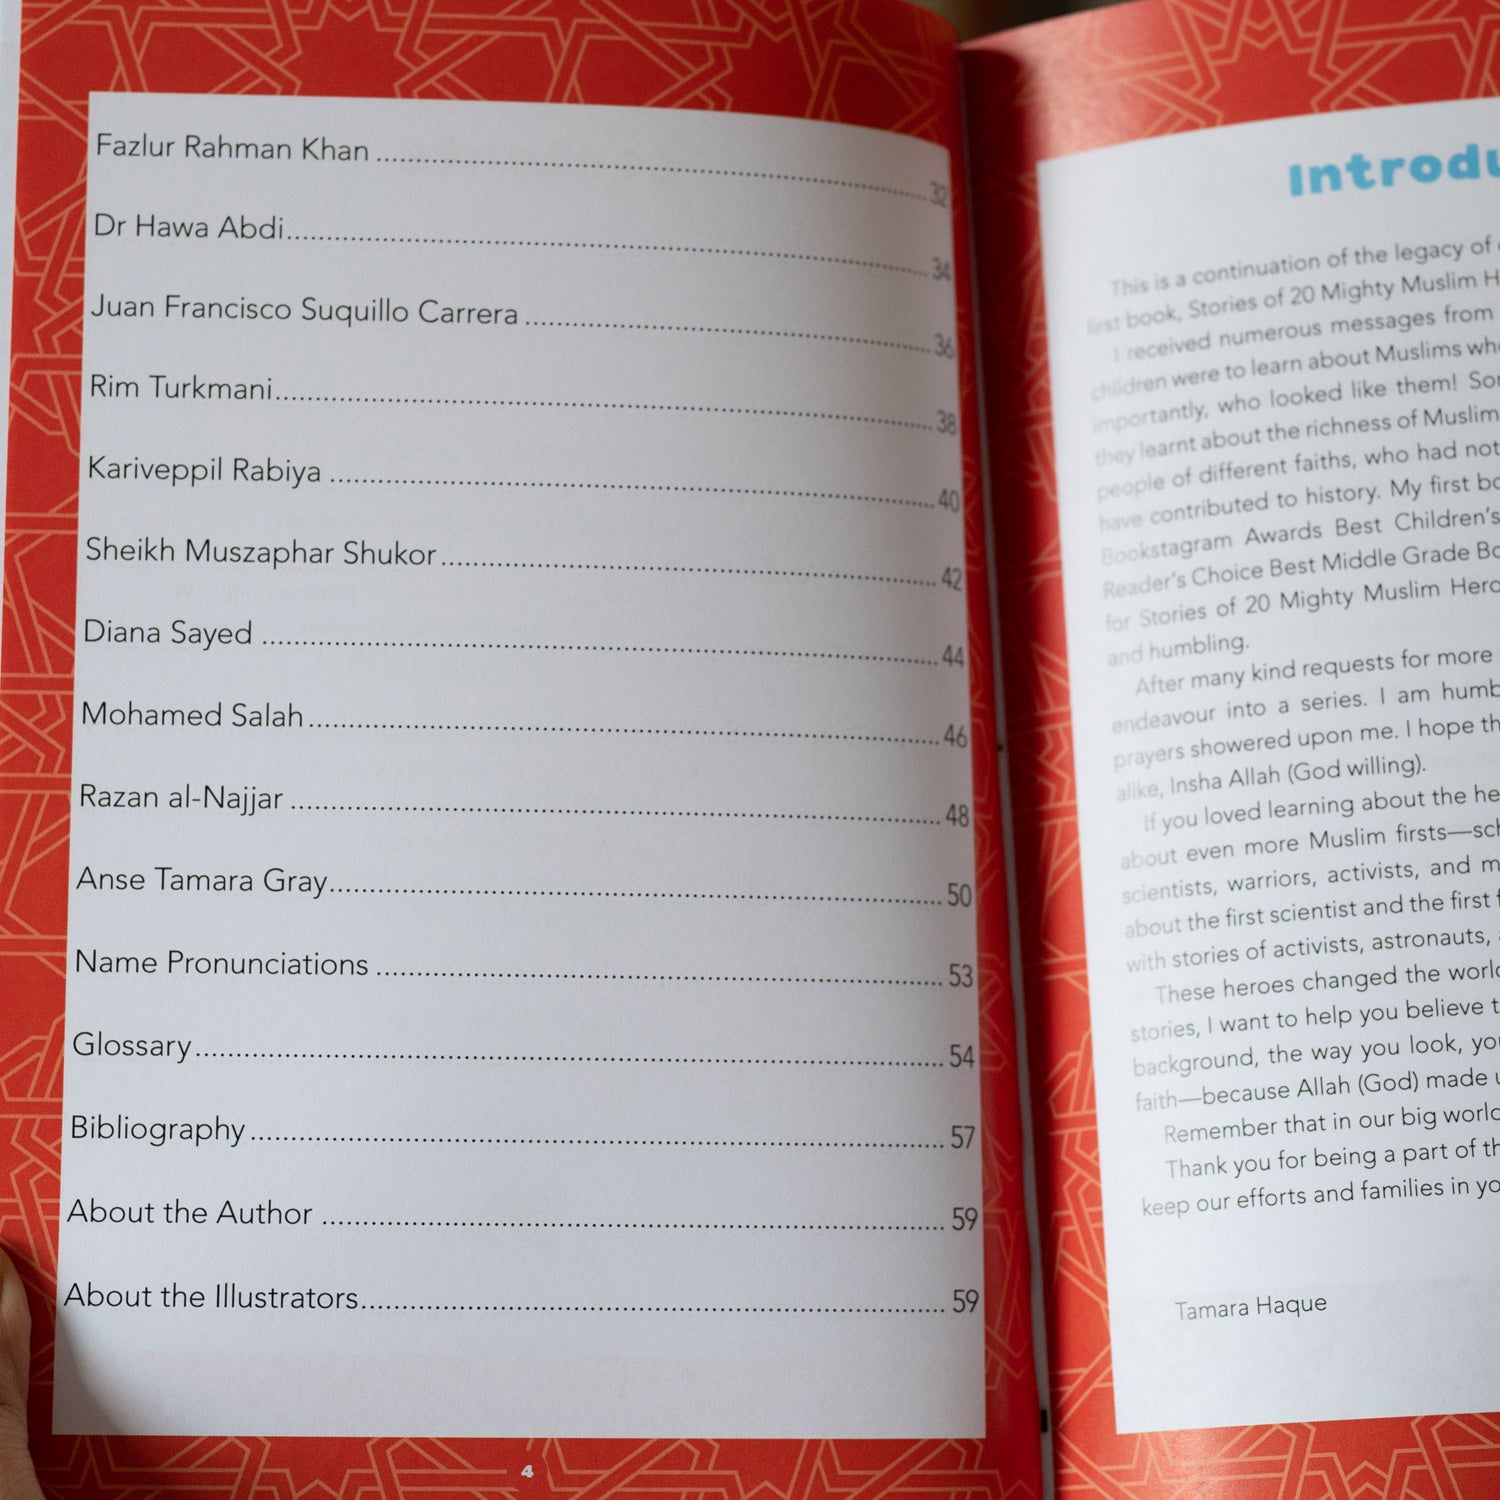 Fazlur Rahman Khan ........ 32
Dr Hawa Abdi ........ 34
Juan Francisco Suquillo Carrera ........ 36
Rim Turkmani ........ 38
Kariveppil Rabiya ........ 40
Sheikh Muszaphar Shukor ........ 42
Diana Sayed ........ 44
Mohamed Salah ........ 46
Razan al-Najjar ........ 48
Anse Tamara Gray ........ 50
Name Pronunciations ........ 53
Glossary ........ 54
Bibliography ........ 57
About the Author ........ 59
About the Illustrators ........ 59
4
Introdu
This is a continuation of the legacy of
first book, Stories of 20 Mighty Muslim H
I received numerous messages from
children were to learn about Muslims who
importantly, who looked like them! Son
they learnt about the richness of Muslim
people of different faiths, who had not
have contributed to history. My first bo
Bookstagram Awards Best Children's
Reader's Choice Best Middle Grade Bo
for Stories of 20 Mighty Muslim Hero
and humbling.
After many kind requests for more
endeavour into a series. I am humb
prayers showered upon me. I hope th
alike, Insha Allah (God willing).
If you loved learning about the he
about even more Muslim firsts—sch
scientists, warriors, activists, and m
about the first scientist and the first f
with stories of activists, astronauts,
These heroes changed the world
stories, I want to help you believe t
background, the way you look, you
faith—because Allah (God) made u
Remember that in our big world
Thank you for being a part of th
keep our efforts and families in yo
Tamara Haque